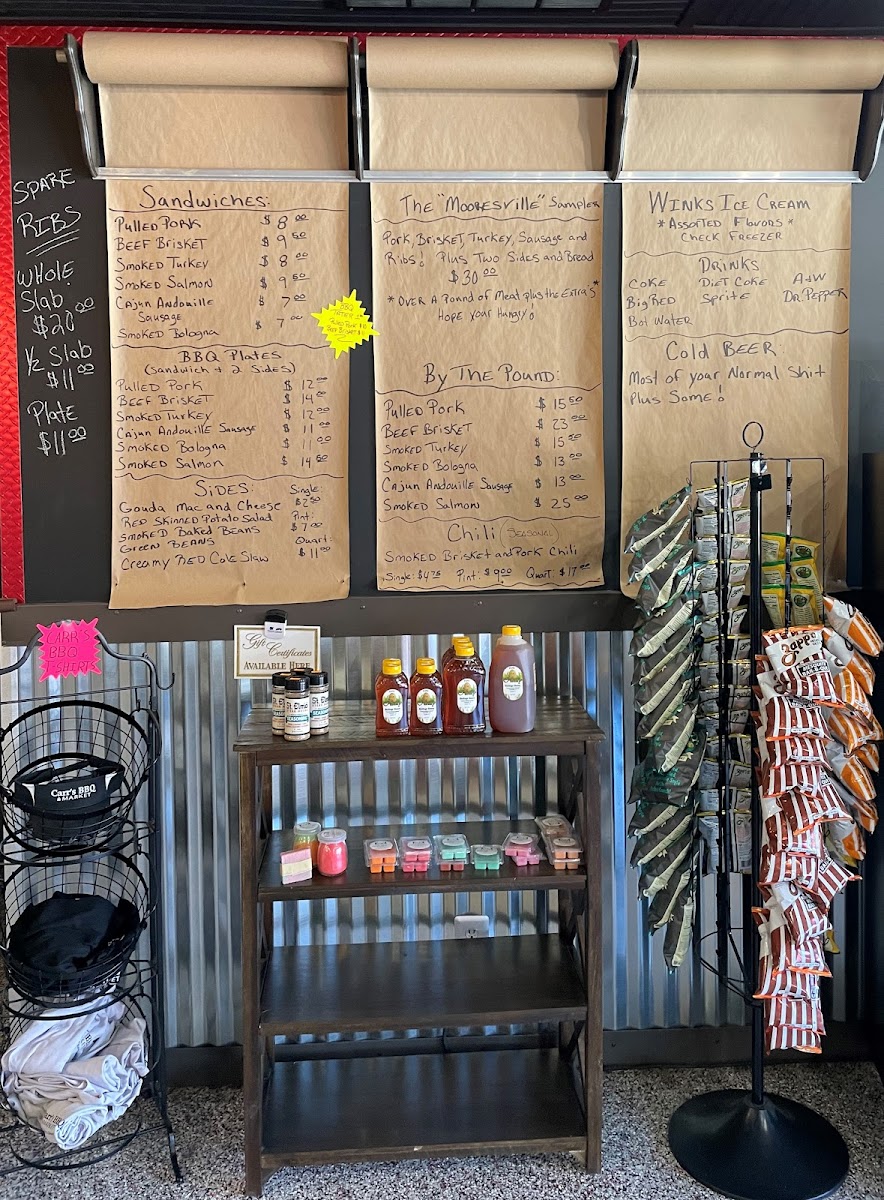 SPARE
RIBS
WHOLE
Slab
$20.00
1/2 Slab
$11.00
Plate
$11.00
Sandwiches:
Pulled Pork $8.00
Beef Brisket $9.50
Smoked Turkey $8.00
Smoked Salmon $9.50
Cajun Andouille
Sausage $7.00
Smoked Bologna $7.00
BBQ Plates
(Sandwich + 2 Sides)
Pulled Pork $12.00
Beef Brisket $14.00
Smoked Turkey $12.00
Cajun Andouille Sausage $11.00
Smoked Bologna $11.00
Smoked Salmon $14.50
Sides:
Gouda Mac and Cheese
Red Skinned Potato Salad
Smoked Baked Beans
Green Beans
Creamy Red Cole Slaw
Single:
$2.50
Pint:
$7.00
Quart:
$11.00
The "Mooresville" Sampler
Pork, Brisket, Turkey, Sausage and
Ribs! Plus Two Sides and Bread
$30.00
*Over a Pound of Meat plus the Extra's*
Hope your Hungry!
By The Pound:
Pulled Pork $15.50
Beef Brisket $23.00
Smoked Turkey $15.50
Smoked Bologna $13.00
Cajun Andouille Sausage $13.00
Smoked Salmon $25.00
Chili (Seasonal)
Smoked Brisket and Pork Chili
Single: $4.75 Pint: $9.00 Quart: $17.00
Winks Ice Cream
*Assorted Flavors*
Check Freezer
Drinks
Coke Diet Coke A+W
Big Red Sprite Dr. Pepper
Bot Water
Cold Beer:
Most of your Normal Shit
Plus Some!
CARR'S
BBQ
T-SHIRTS
Gift
Certificates
AVAILABLE HERE
St. Elmo
SEASONING
Carr's BBQ
& MARKET
Zapp's